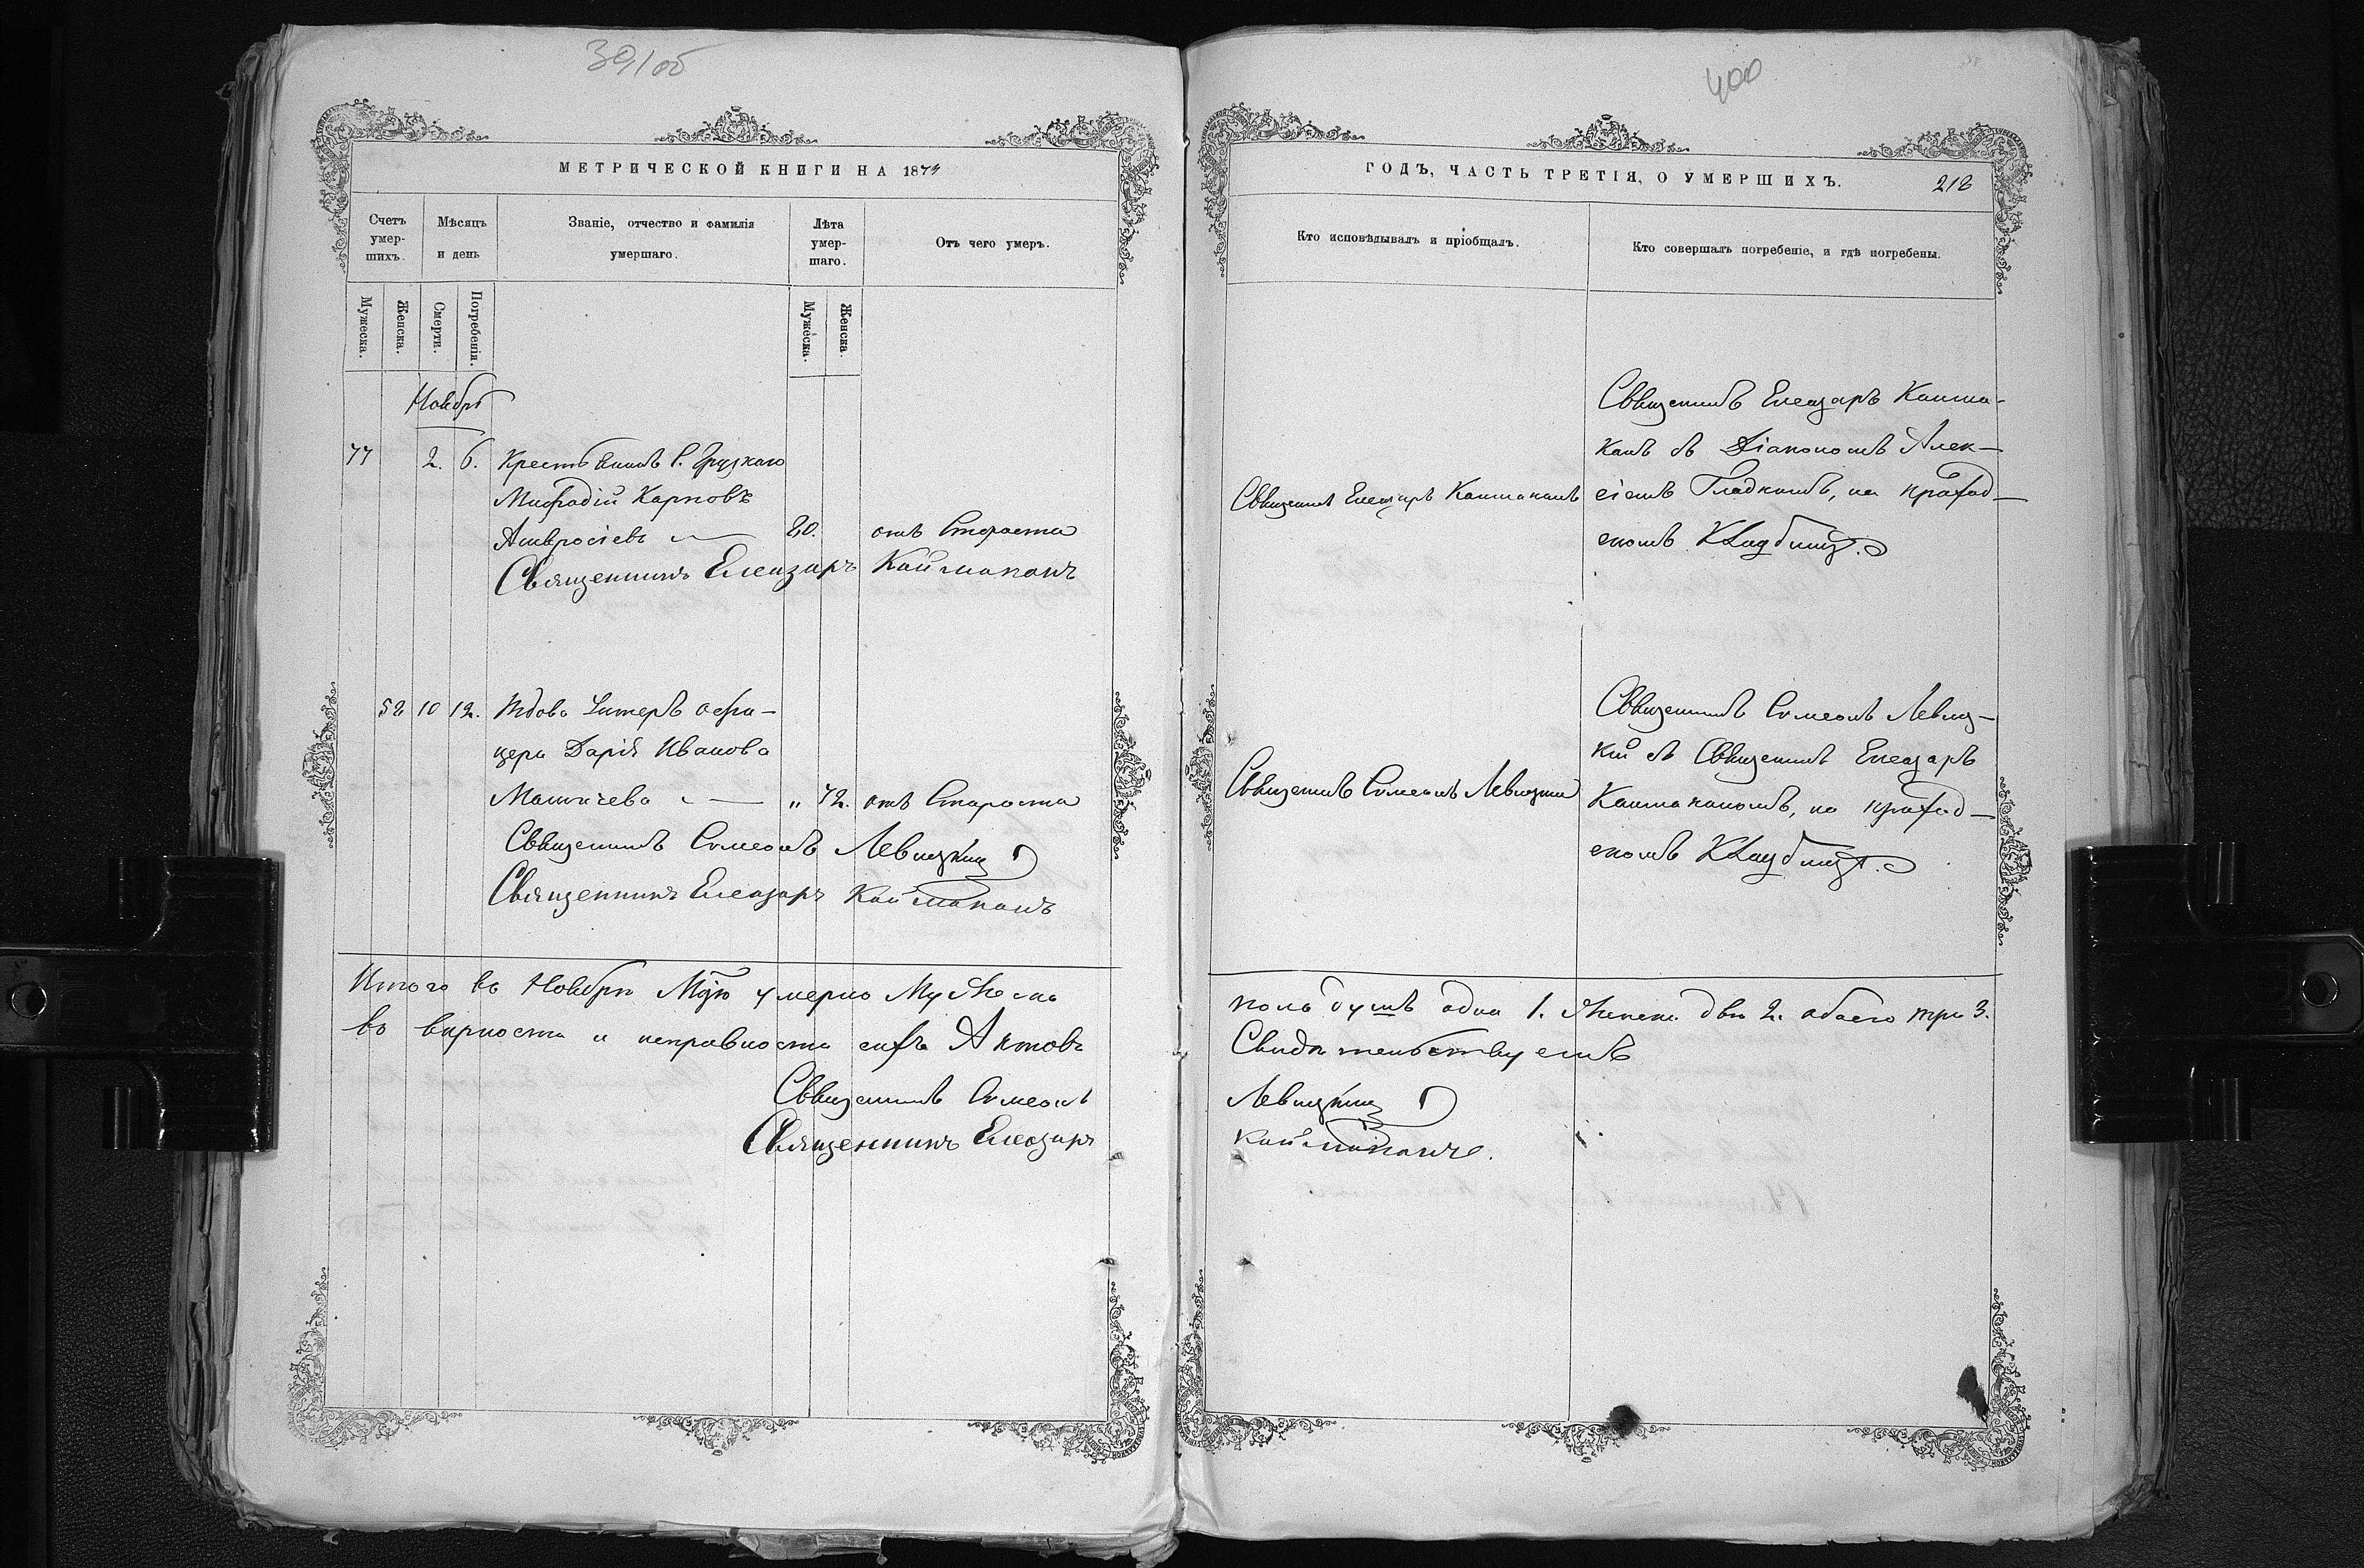 399об
МЕТРИЧЕСКОЙ КНИГИ НА 1874
Счетъ умер-шихъ.
Мѣсяцъ и день
Званіе, отчество и фамилія умершаго.
Лѣта умер-шаго.
Отъ чего умеръ.
Мужеска.
Женска.
Смерти.
Погребенія.
Мужеска.
Женска.
Ноябрь
77 2. 6. Крестьянинъ С. Грузкаго
Мифодій Карповъ
Амвросіевъ 80. отъ Старости
Священникъ Елеазаръ Каймаканъ
52 10 12. Вдова Унтеръ офи-
цера Дарія Иванова
" 72. отъ Старости
Священникъ Симеонъ Левицкій
Священникъ Елеазаръ Каймаканъ
Итого въ Ноябрѣ М-цѣ умерло Мужеска
въ вѣрности и исправности сихъ Актовъ
Священникъ Симеонъ
Священникъ Елеазаръ
400
ГОДЪ, ЧАСТЬ ТРЕТІЯ, О УМЕРШИХЪ.
218
Кто исповѣдывалъ и пріобщалъ.
Кто совершалъ погребеніе, и гдѣ погребены.
Священникъ Елеазаръ Каймаканъ
Священникъ Елеазаръ Кайма-
канъ съ Діакономъ Алек-
сіемъ Гладкимъ, на приход-
скомъ Кладбищѣ.
Священникъ Симеонъ Левицкій
Священникъ Симеонъ Левиц-
кій съ Священник Елеазаръ
Каймаканомъ, на приход-
скомъ Кладбищѣ.
пола душъ одна 1. Женска двѣ 2. обоего три 3.
Свидѣтельствуемъ
Левицкій
Каймаканъ.